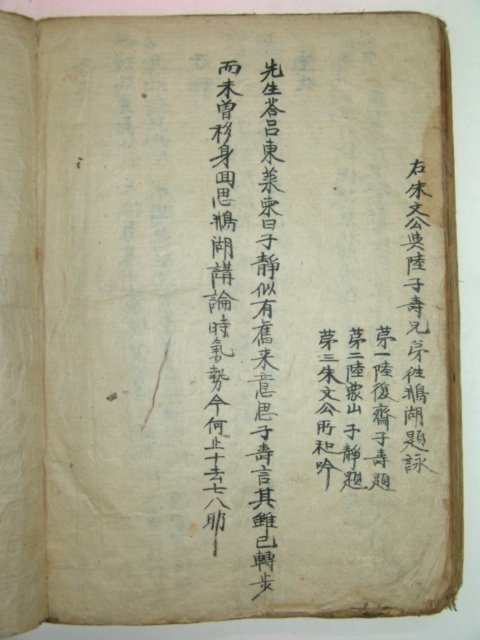 右朱文公與陸子壽兄弟徃鵝湖題詠
苐一陸復齋子壽題
苐二陸象山子靜題
苐三朱文公所和吟
先生答呂東萊柬曰子靜似有舊来意思子壽言其雖已轉步
而未曽移身囬思鵝湖講論時氣勢今何止十去七八耶